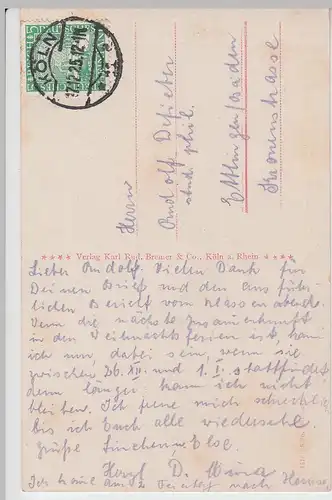 KÖLN
Herrn
Rudolf
stud phil.
Ettlingen/Baden
Kronenstrasse
Verlag Karl Rud. Bremer & Co., Köln a. Rhein
Lieber Rudolf. Vielen Dank für
Deinen Brief und den ausführ-
lichen Bericht vom Klassenabend.
Wenn die nächste Zusammenkunft
in den Weihnachtsferien ist, kann
ich nur dabei sein, wenn sie
zwischen 26. XII. und 1. I. stattfindet
denn länger kann ich nicht
bleiben. Ich freue mich schrecklich
bis ich Euch alle wiedersehe.
Grüße Linchen, Else.
Herzl. D.
Ich am 2. Feiertag nach Hause